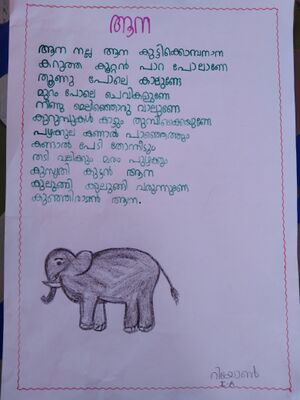 ആന
ആന നല്ല ആന കുട്ടിക്കൊമ്പനാന
കറുത്ത കൂറ്റൻ പാറ പോലാണേ
തൂണു പോലെ കാലുണ്ടേ
മുറം പോലെ ചെവികളുണ്ടേ
നീണ്ടു മെലിഞ്ഞൊരു വാലുണ്ടേ
കുറുമ്പുകൾ കാട്ടും തുമ്പികൈയുണ്ടേ
പഴക്കുല കണ്ടാൽ പാഞ്ഞെത്തും
കണ്ടാൽ പേടി തോന്നീടും
തടി വലിക്കും മരം പുഴക്കും
കുസൃതി കുട്ടൻ ആന
കുലുങ്ങി കുലുങ്ങി വരുന്നുണ്ടേ
കുഞ്ഞിരാമൻ ആന.
റിയോൺ
I-B